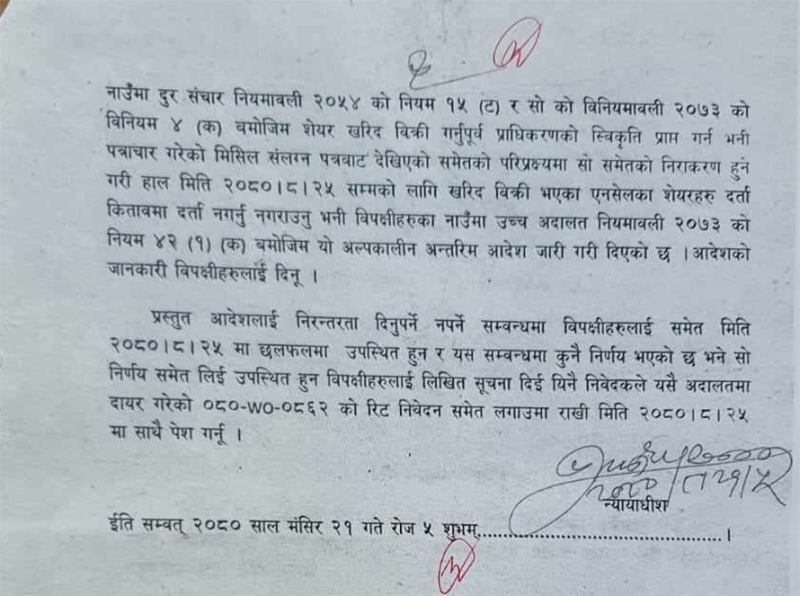 नाउँमा दुर संचार नियमावली २०५४ को नियम १५ (ट) र सो को विनियमावली २०७३ को
विनियम ४ (क) बमोजिम शेयर खरिद विक्री गर्नुपूर्व प्राधिकरणको स्विकृति प्राप्त गर्न भनी
पत्राचार गरेको मिसिल संलग्न पत्रवाट देखिएको समेतको परिप्रक्ष्यमा सो समेतको निराकरण हुने
गरी हाल मिति २०८०।८।२५ सम्मको लागि खरिद विक्री भएका एनसेलका शेयरहरु दर्ता
कितावमा दर्ता नगर्नु नगराउनु भनी विपक्षीहरुका नाउँमा उच्च अदालत नियमावली २०७३ को
नियम ४२ (१) (क) बमोजिम यो अल्पकालीन अन्तरिम आदेश जारी गरी दिएको छ ।आदेशको
जानकारी विपक्षीहरुलाई दिनू ।
प्रस्तुत आदेशलाई निरन्तरता दिनुपर्ने नपर्ने सम्बन्धमा विपक्षीहरुलाई समेत मिति
२०८०।८।२५ मा छलफलमा उपस्थित हुन र यस सम्बन्धमा कुनै निर्णय भएको छ भने सो
निर्णय समेत लिई उपस्थित हुन विपक्षीहरुलाई लिखित सूचना दिई यिनै निवेदकले यसै अदालतमा
दायर गरेको ०८०-WO-०८६२ को रिट निवेदन समेत लगाउमा राखी मिति २०८०।८।२५
मा साथै पेश गर्नू ।
न्यायाधीश
ईति सम्वत् २०८० साल मंसिर २१ गते रोज ५ शुभम्..............................................।